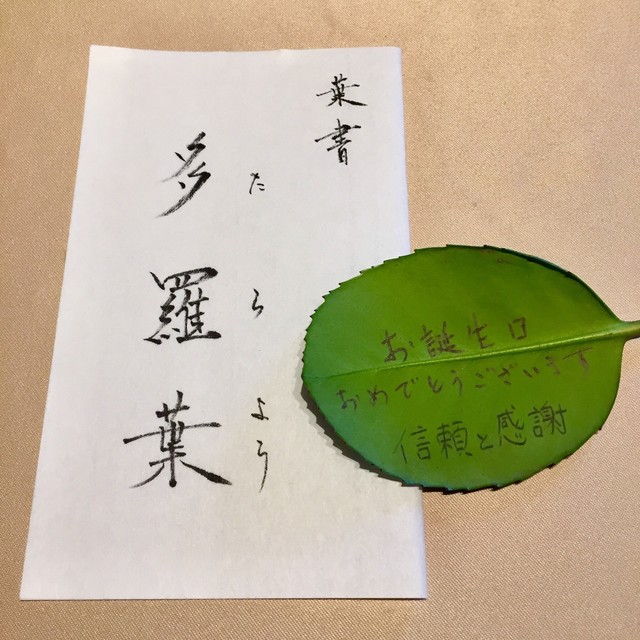 葉書
多羅葉
たらよう
お誕生日
おめでとうございます
信頼と感謝